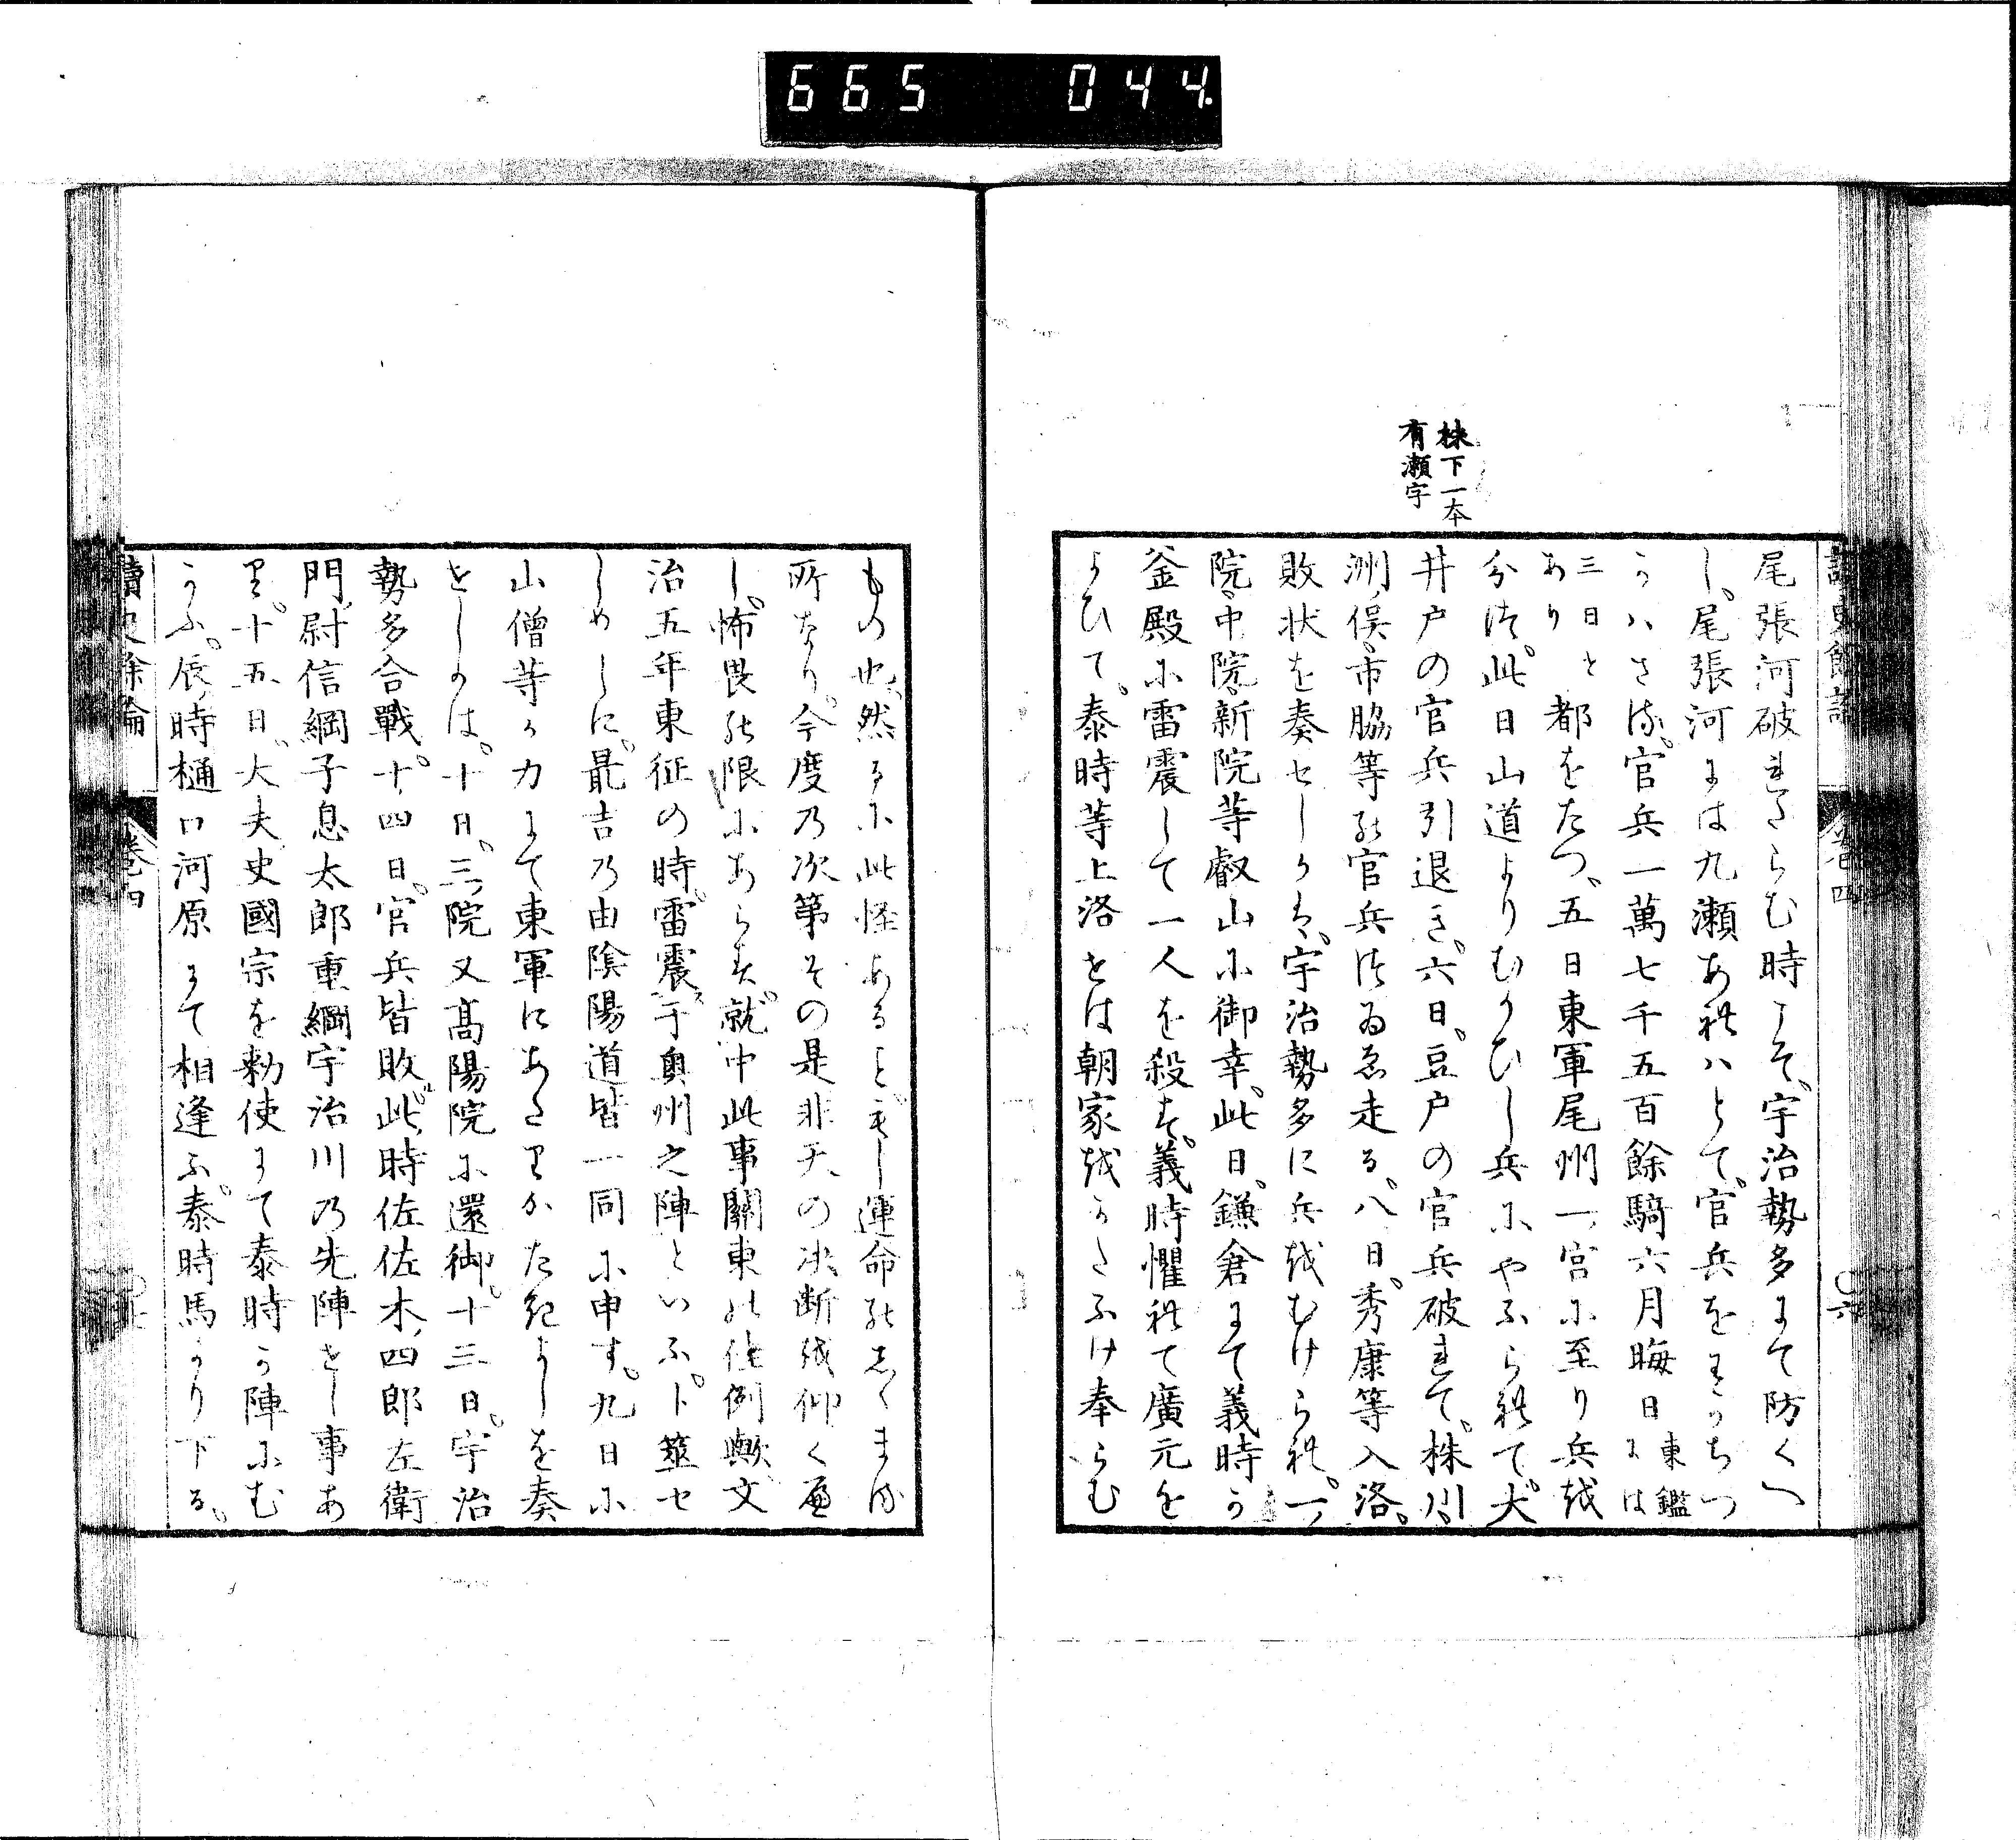 665 044.
株下一本
有瀬字
尾張河破れたらむ時こそ、宇治勢多にて防くへ
し、尾張河には九瀬あれハとて、官兵をわかちつ
かハさる、官兵一萬七千五百餘騎六月晦日東鑑には
三日とあり都をたつ、五日東軍尾州一宮に至り兵を
分つ、此日山道よりむかひし兵にやふられて、大
井戸の官兵引退き、六日、豆戸の官兵破れて、株川、
洲俣、市脇等の官兵つゐゑ走る、八日、秀康等入洛、
敗状を奏せしかハ、宇治勢多に兵をむけられ、一
院、中院、新院等叡山に御幸、此日、鎌倉にて義時か
釜殿に雷震して一人を殺す、義時懼れて廣元を
よひて、泰時等上洛とは朝家をかたふけ奉らむ
もの也、然るに此怪あることぞし運命のしくまる
所なり、今度の次第その是非天の决断を仰く處
し、怖畏の限にあらす、就中此事關東の佳例歟、文
治五年東征の時、雷震于奥州之陣といふ、卜筮せ
しめしに、最吉の由陰陽道皆一同に申す。九日に
山僧等か力にて東軍にあたりかたきよしを奏
せしかは、十日、三院又高陽院に還御、十三日、宇治
勢多合戰、十四日、官兵皆敗、此時佐佐木四郎左衛
門尉信綱子息太郎重綱宇治川の先陣せし事あ
り、十五日、大夫史國宗を勅使にて泰時か陣にむ
かふ、辰時樋口河原にて相逢ふ、泰時馬より下る、
讀史餘論
卷四